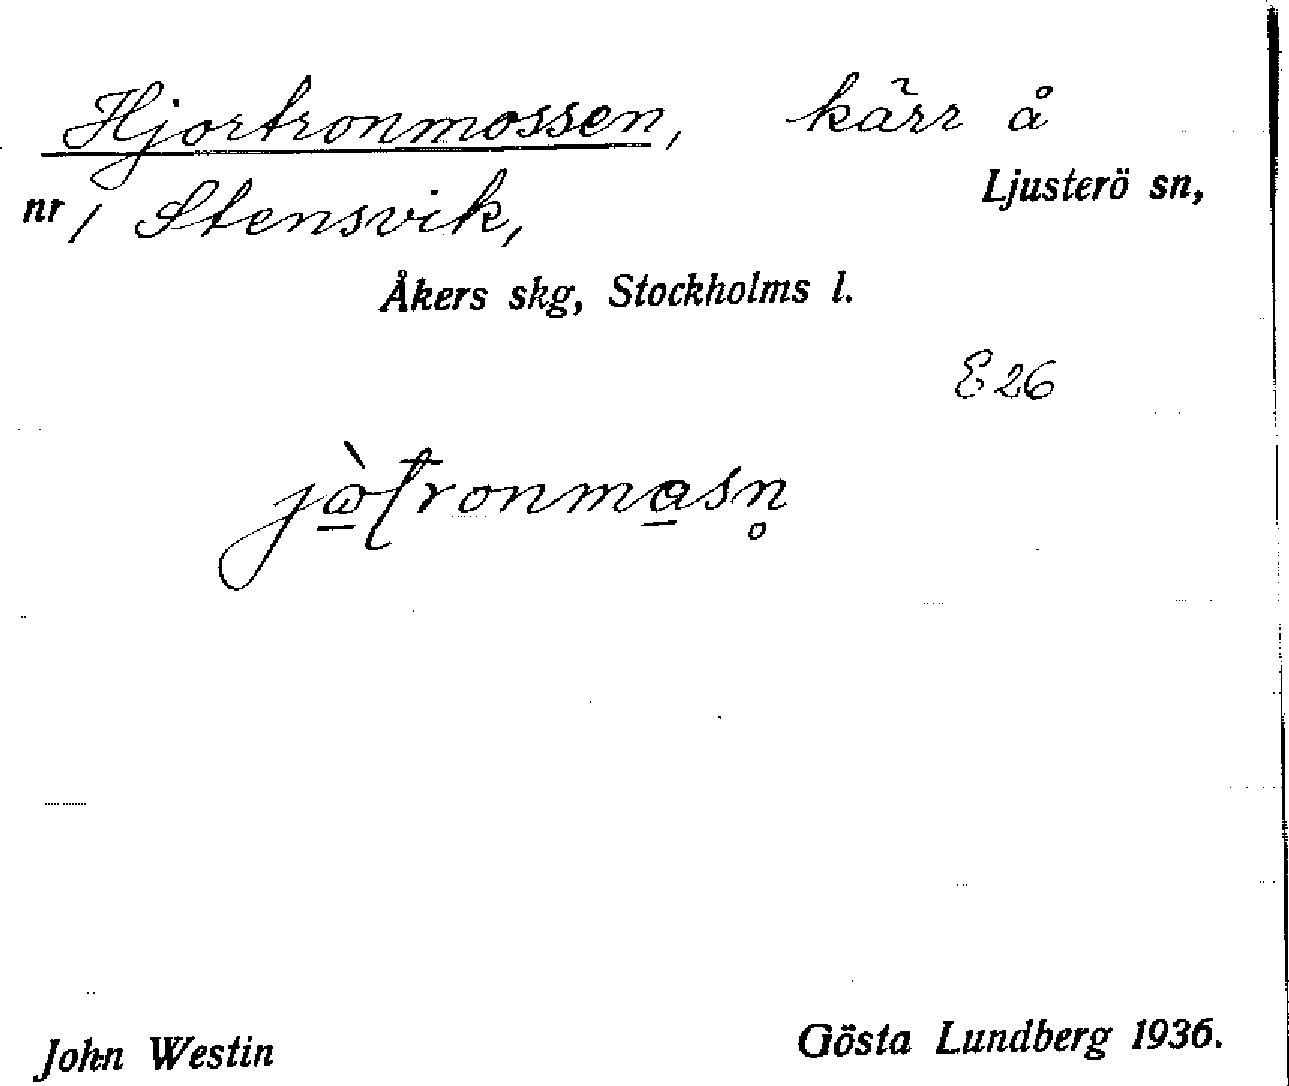 Hjortronmossen, kärr å
Ljusterö sn,
nr 1 Stensvik,
Åkers skg, Stockholms l.
E 26
jòtronmasn̥
John Westin
Gösta Lundberg 1936.